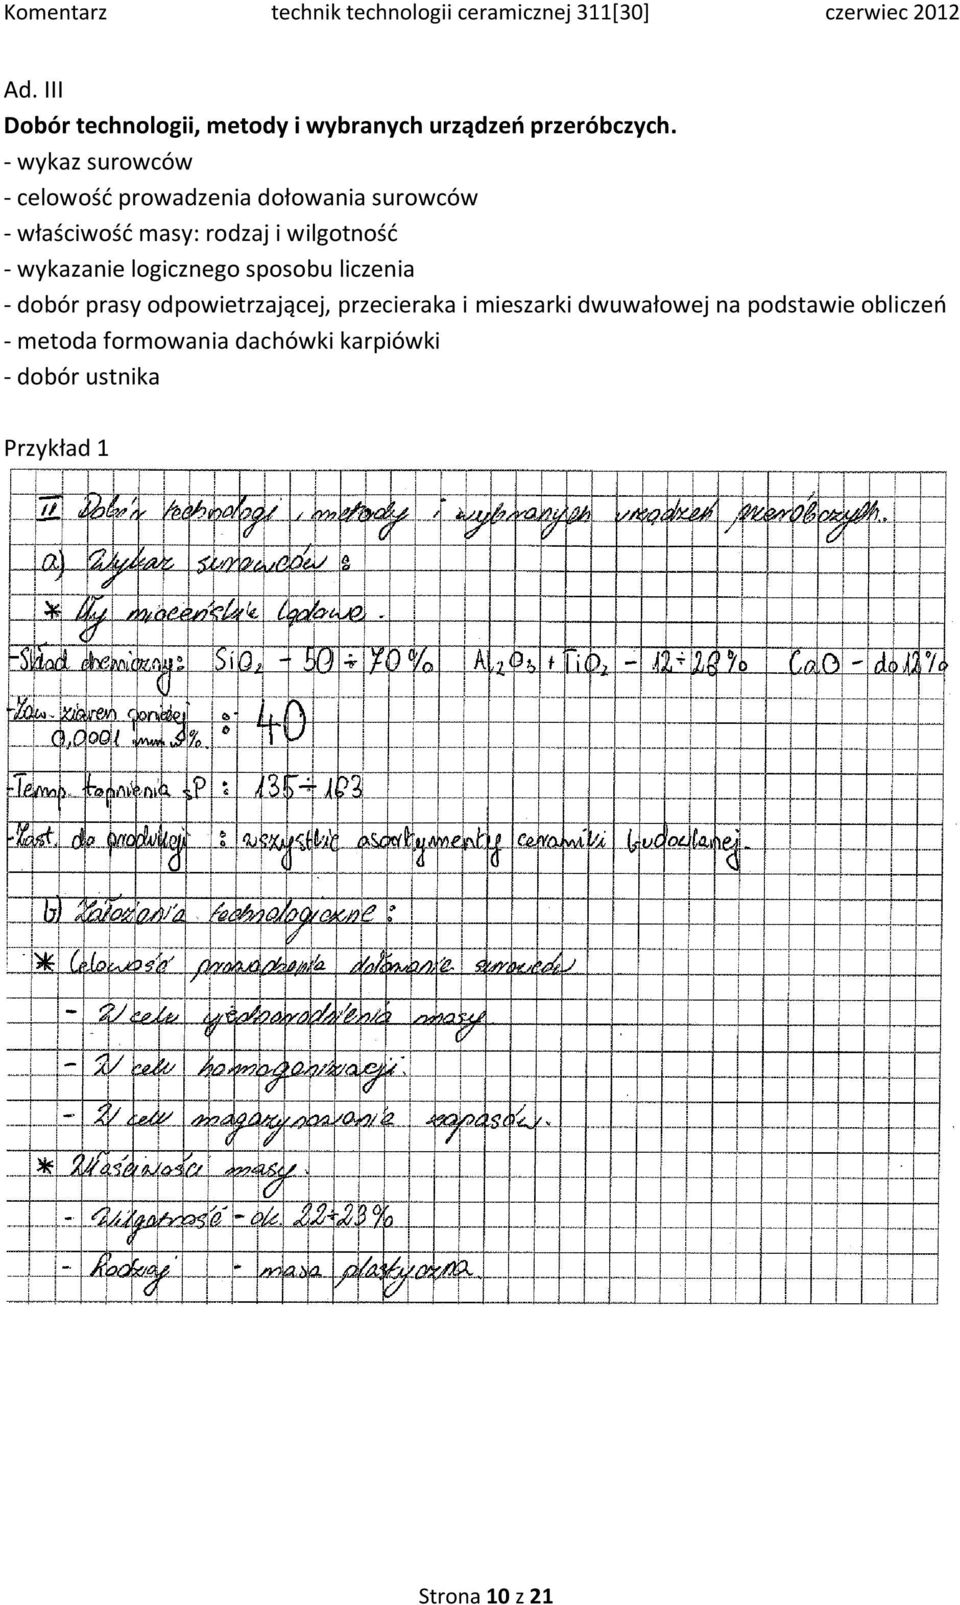 Komentarz technik technologii ceramicznej 311[30] czerwiec 2012
Ad. III
Dobór technologii, metody i wybranych urządzeń przeróbczych.
- wykaz surowców
- celowość prowadzenia dołowania surowców
- właściwość masy: rodzaj i wilgotność
- wykazanie logicznego sposobu liczenia
- dobór prasy odpowietrzającej, przecieraka i mieszarki dwuwałowej na podstawie obliczeń
- metoda formowania dachówki karpiówki
- dobór ustnika
Przykład 1
III Dobór technologi, metody i wybranych urządzeń przeróbczych.
a) Wykaz surowców :
* Iły mioceńskie lądowe.
- Skład chemiczny: SiO2 - 50 ÷ 70% Al2O3 + TiO2 - 12 ÷ 28% CaO - do 12%
- Zaw. ziaren poniżej : 40
0,0001 mm %
- Temp. topnienia sP : 135 ÷ 163
- Zast. do produkcji : wszystkie asortymenty ceramiki budowlanej.
b) Założenia technologiczne :
* Celowość prowadzenia dołowanie surowców
- W celu ujednorodnienia masy
- W celu homogenizacji.
- W celu magazynowania zapasów.
* Właściwości masy.
- Wilgotność - ok. 22÷23%
- Rodzaj - masa plastyczna.
Strona 10 z 21